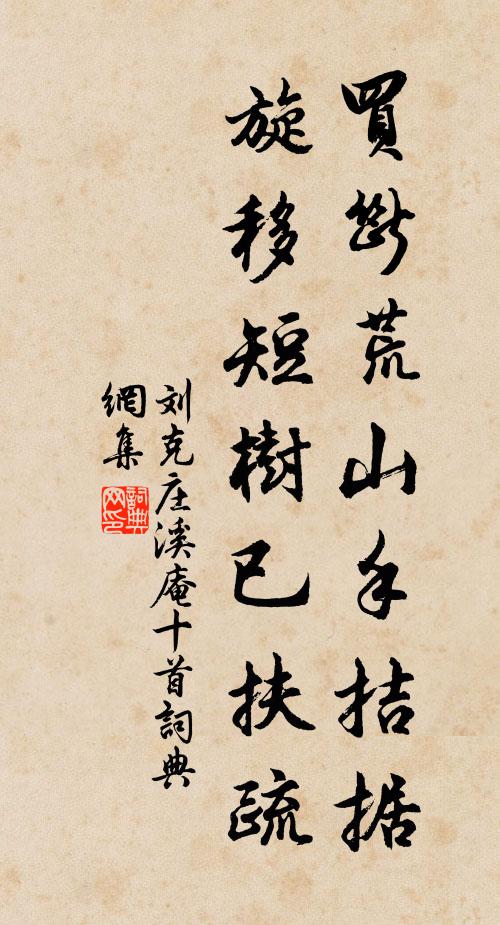 買斷荒山手拮据
旋移短樹已扶疏
刘克庄溪庵十首詞典
網集
詞典
网印